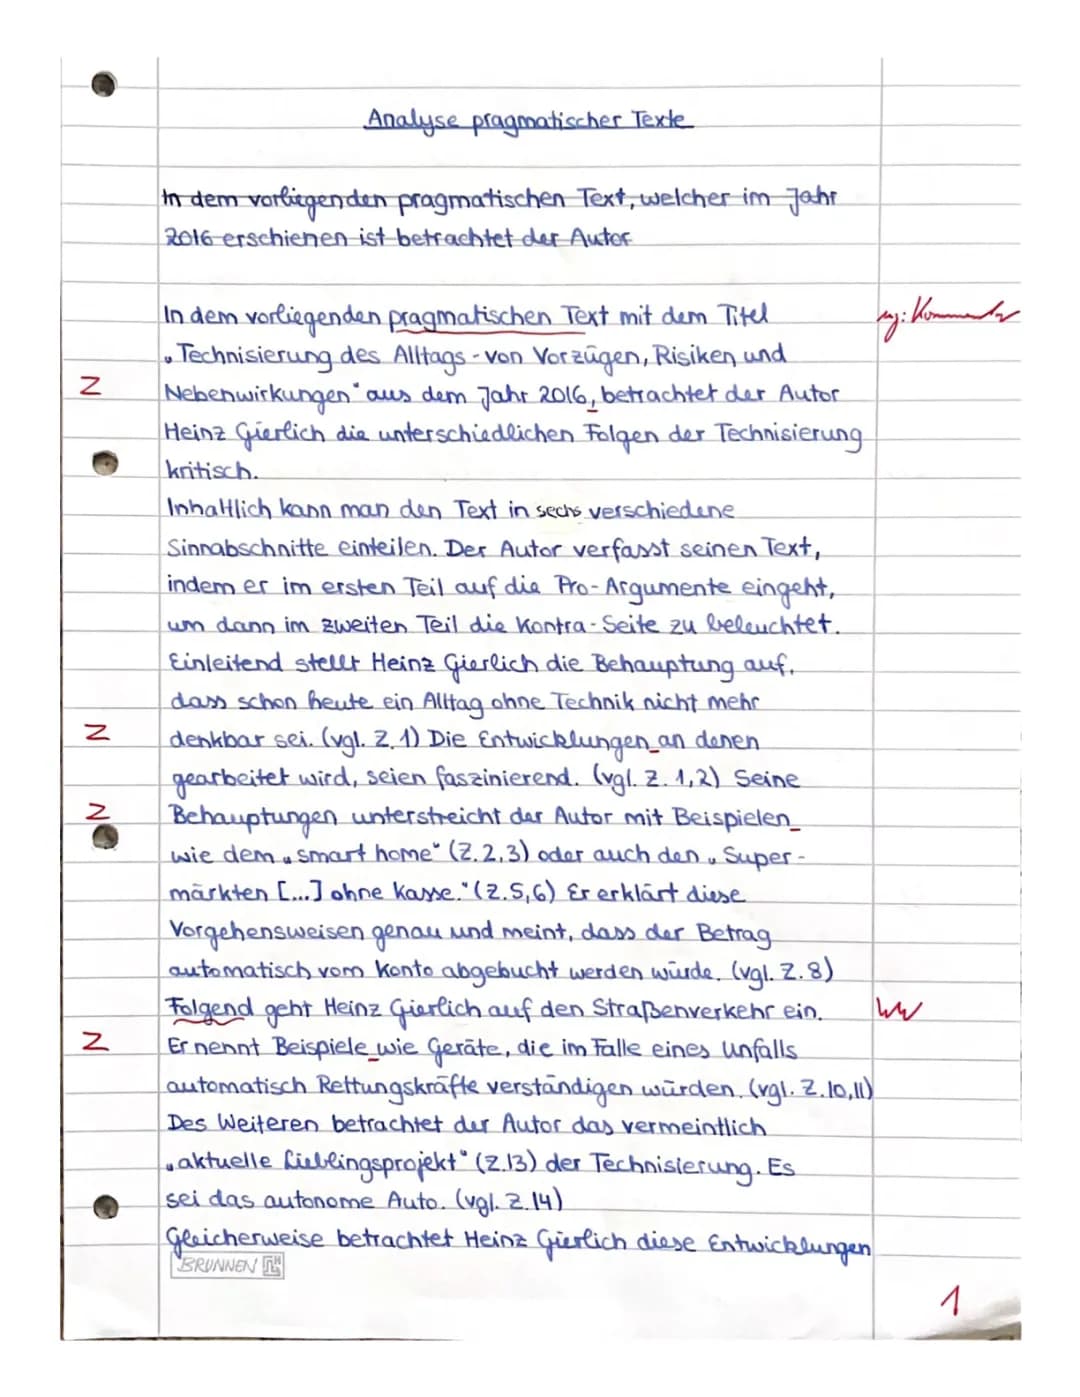 Analyse pragmatischer Texte
In dem vorliegenden pragmatischen Text, welcher im Jahr
2016 erschienen ist betrachtet der Autor
In dem vorliegenden pragmatischen Text mit dem Titel
„Technisierung des Alltags - von Vorzügen, Risiken und
Z
Nebenwirkungen“ aus dem Jahr 2016, betrachtet der Autor
Heinz Gierlich die unterschiedlichen Folgen der Technisierung
kritisch.
Inhaltlich kann man den Text in sechs verschiedene
Sinnabschnitte einteilen. Der Autor verfasst seinen Text,
indem er im ersten Teil auf die Pro-Argumente eingeht,
um dann im zweiten Teil die Kontra-Seite zu beleuchtet.
Einleitend stellt Heinz Gierlich die Behauptung auf,
dass schon heute ein Alltag ohne Technik nicht mehr
Z
denkbar sei. (vgl. Z. 1) Die Entwicklungen an denen
gearbeitet wird, seien faszinierend. (vgl. Z. 1,2) Seine
Z
Behauptungen unterstreicht der Autor mit Beispielen
wie dem „smart home“ (Z. 2,3) oder auch den „Super-
märkten [...] ohne Kasse.“ (Z. 5,6) Er erklärt diese
Vorgehensweisen genau und meint, dass der Betrag
automatisch vom Konto abgebucht werden würde. (vgl. Z. 8)
Folgend geht Heinz Gierlich auf den Straßenverkehr ein.
Z
Er nennt Beispiele wie Geräte, die im Falle eines Unfalls
automatisch Rettungskräfte verständigen würden. (vgl. Z. 10,11)
Des Weiteren betrachtet der Autor das vermeintlich
„aktuelle Lieblingsprojekt“ (Z.13) der Technisierung. Es
sei das autonome Auto. (vgl. Z. 14)
Gleicherweise betrachtet Heinz Gierlich diese Entwicklungen
BRUNNEN
1